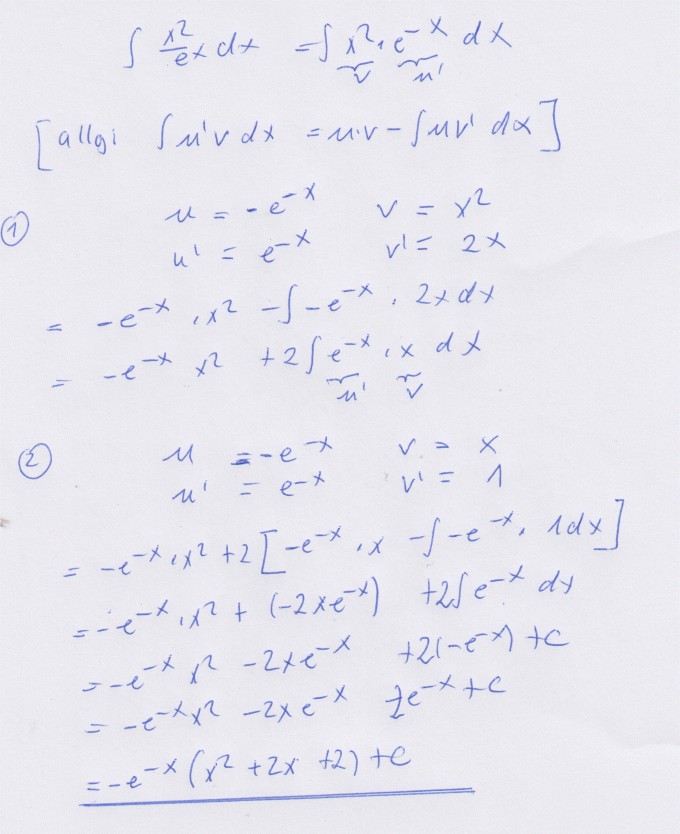 ∫ x²/eˣ dx = ∫ x² · e⁻ˣ dx
v u'
[allg: ∫ u'v dx = u·v − ∫ uv' dx]
① u = −e⁻ˣ v = x²
u' = e⁻ˣ v' = 2x
= −e⁻ˣ · x² − ∫ −e⁻ˣ · 2x dx
= −e⁻ˣ x² + 2∫ e⁻ˣ · x dx
u' v
② u = −e⁻ˣ v = x
u' = e⁻ˣ v' = 1
= −e⁻ˣ · x² + 2[−e⁻ˣ · x − ∫ −e⁻ˣ · 1dx]
= −e⁻ˣ · x² + (−2xe⁻ˣ) + 2∫ e⁻ˣ dx
= −e⁻ˣ x² − 2xe⁻ˣ + 2(−e⁻ˣ) + c
= −e⁻ˣx² − 2xe⁻ˣ 2e⁻ˣ + c
= −e⁻ˣ (x² + 2x + 2) + c